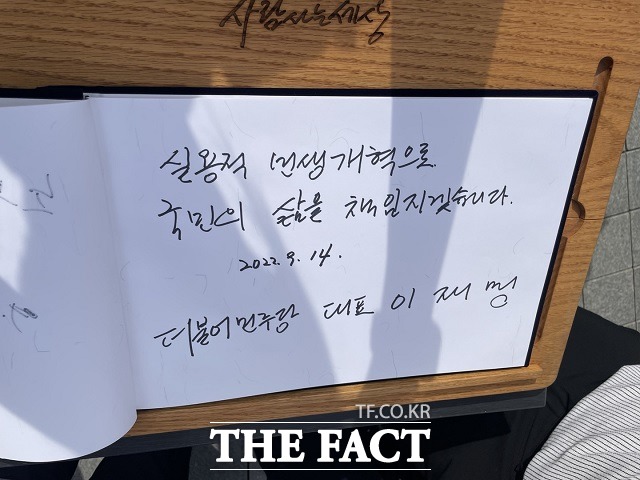 사람사는세상
실용적 민생개혁으로
국민의 삶을 책임지겠습니다.
2022. 9. 14.
더불어민주당 대표 이재명
TF.CO.KR
THE FACT